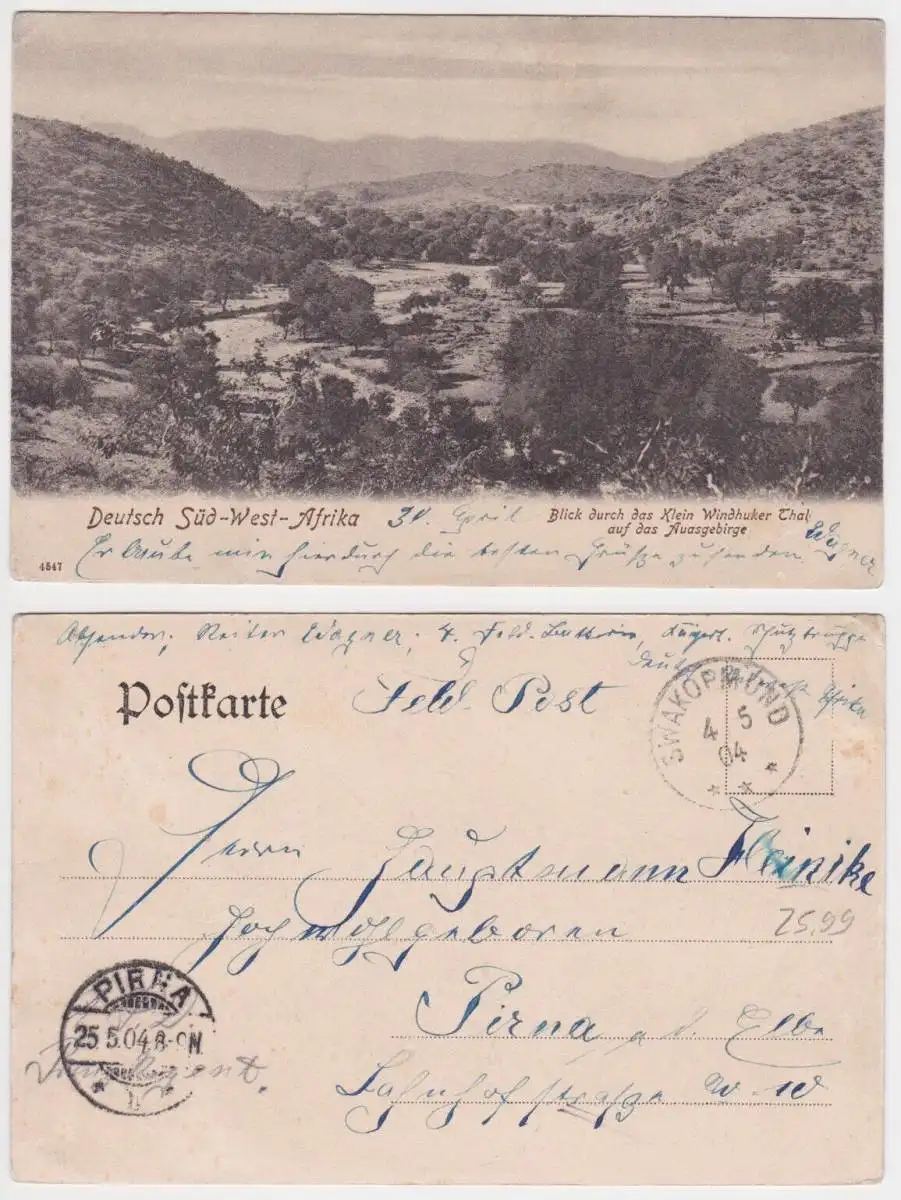 Deutsch Süd-West-Afrika 30. April Blick durch das Klein Windhuker Thal
auf das Auasgebirge
Erlaube mir hierdurch die besten Grüße zu senden Wagner
4547
Absender: Reiter Wagner, 4. Feld-Batterie, Schutztruppe
Deutsch Südwest Afrika
Postkarte Feld-Post
SWAKOPMUND
4 5
04
* * *
Herrn Hauptmann Fleinike
Hochwohlgeboren
25,99
Pirna a. d. Elbe
Bahnhofstraße
PIRNA
25.5.04.8-9N.
* *